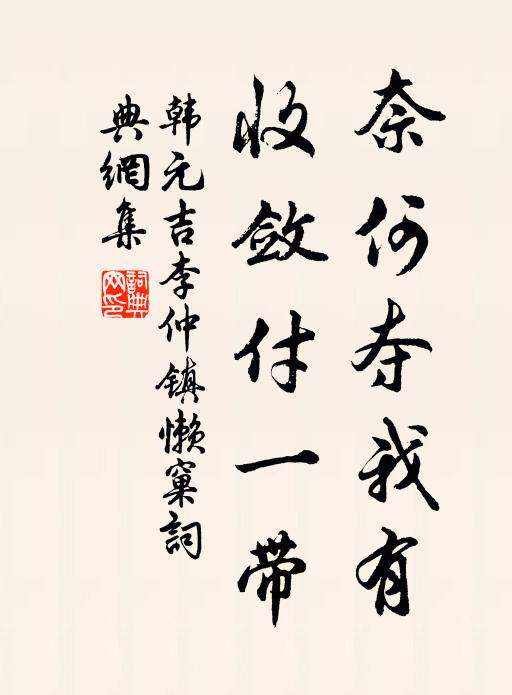 奈何夺我有
收敛付一带
韩元吉李仲镇懒窠詞
典網集
詞典网印